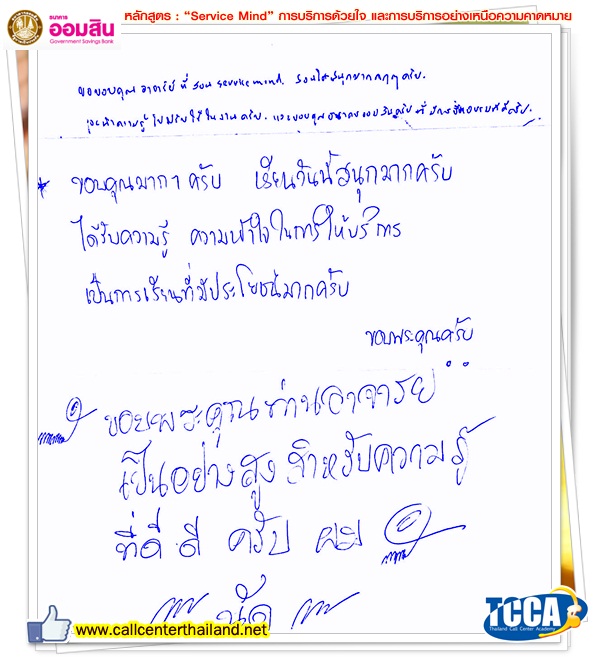 ธนาคาร
ออมสิน
Government Savings Bank
หลักสูตร : “Service Mind” การบริการด้วยใจ และการบริการอย่างเหนือความคาดหมาย
ขอขอบคุณ อาจารย์ ที่ สอน service mind. สอนได้สนุกมากๆๆๆครับ.
และนำความรู้ ไปปรับใช้ในงานครับ.
* ขอบคุณมากๆ ครับ เรียนวันนี้สนุกมากครับ
ได้รับความรู้ ความเข้าใจในการให้บริการ
เป็นการเรียนที่มีประโยชน์มากครับ
ขอบพระคุณครับ
ขอบพระคุณท่านอาจารย์
เป็นอย่างสูง สำหรับความรู้
ที่ดี ดี ครับ ผม
นัด
www.callcenterthailand.net
TCCA
Thailand Call Center Academy